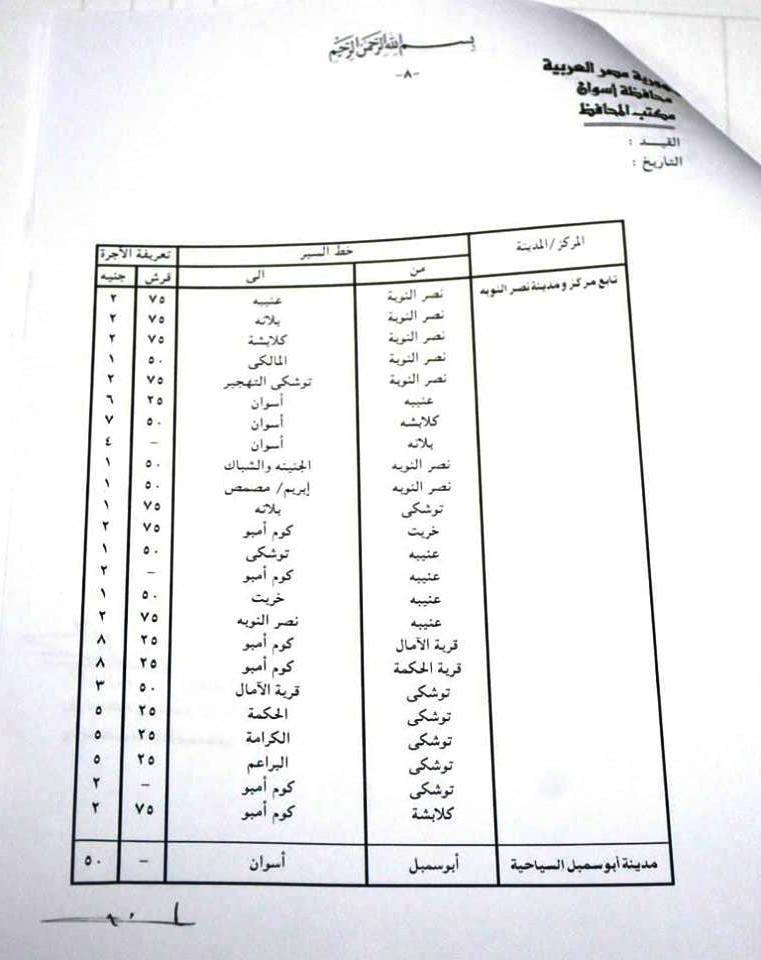 بسم الله الرحمن الرحيم
-٨-
جمهورية مصر العربية
محافظة أسوان
مكتب المحافظ
القيد :
التاريخ :
المركز/المدينة خط السير تعريفة الأجرة
من الى قرش جنيه
تابع مركز ومدينة نصر النوبه نصر النوبة عنيبه ٧٥ ٢
نصر النوبة بلانه ٧٥ ٢
نصر النوبة كلابشة ٧٥ ٢
نصر النوبة المالكى ٥٠ ١
نصر النوبة توشكى التهجير ٧٥ ٢
عنيبه أسوان ٢٥ ٦
كلابشه أسوان ٥٠ ٧
بلانه أسوان – ٤
نصر النوبه الجنينه والشباك ٥٠ ١
نصر النوبه إبريم/ مصمص ٥٠ ١
توشكى بلانه ٧٥ ١
خريت كوم أمبو ٧٥ ٢
عنيبه توشكى ٥٠ ١
عنيبه كوم أمبو – ٢
عنيبه خريت ٥٠ ١
عنيبه نصر النوبه ٧٥ ٢
قرية الآمال كوم أمبو ٢٥ ٨
قرية الحكمة كوم أمبو ٢٥ ٨
توشكى قرية الآمال ٥٠ ٣
توشكى الحكمة ٢٥ ٥
توشكى الكرامة ٢٥ ٥
توشكى البراعم ٢٥ ٥
توشكى كوم أمبو – ٢
كلابشة كوم أمبو ٧٥ ٢
مدينة أبوسمبل السياحية أبوسمبل أسوان – ٥٠